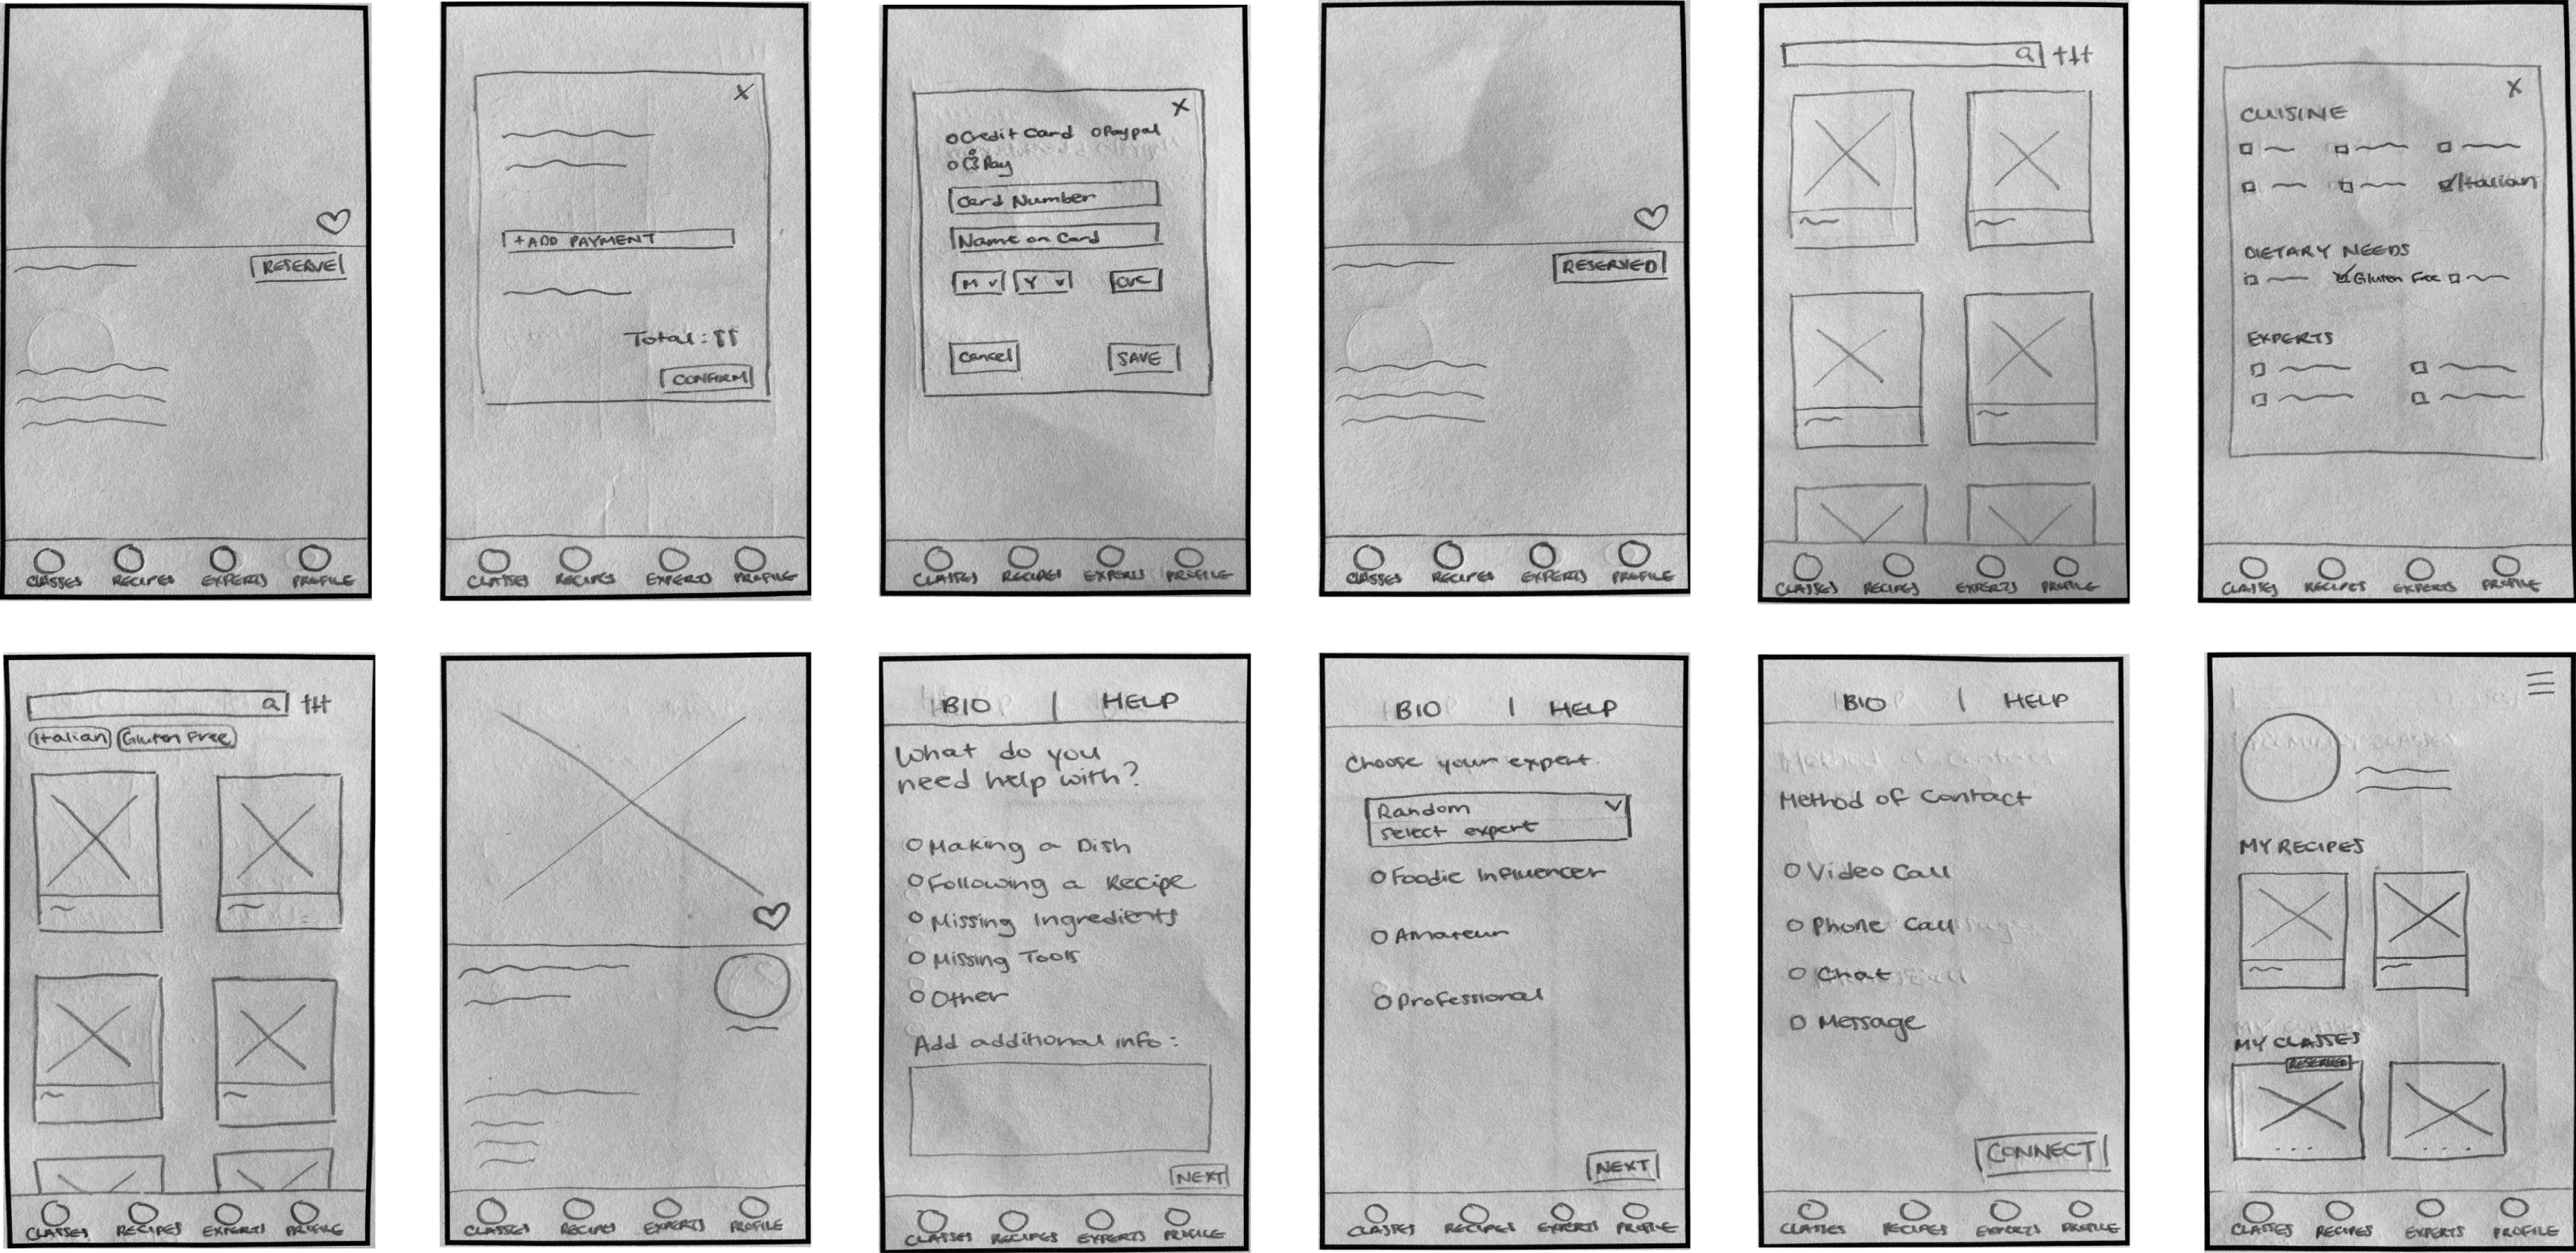 RESERVE
CLASSES RECIPES EXPERTS PROFILE
X
+ADD PAYMENT
Total: $$
CONFIRM
CLASSES RECIPES EXPERTS PROFILE
X
Credit Card Paypal
Pay
Card Number
Name on Card
M Y CVC
Cancel SAVE
CLASSES RECIPES EXPERTS PROFILE
RESERVED
CLASSES RECIPES EXPERTS PROFILE
CLASSES RECIPES EXPERTS PROFILE
X
CUISINE
Italian
DIETARY NEEDS
Gluten Free
EXPERTS
CLASSES RECIPES EXPERTS PROFILE
Italian Gluten Free
CLASSES RECIPES EXPERTS PROFILE
CLASSES RECIPES EXPERTS PROFILE
BIO | HELP
What do you
need help with?
Making a Dish
Following a Recipe
Missing Ingredients
Missing Tools
Other
Add additional info:
NEXT
CLASSES RECIPES EXPERTS PROFILE
BIO | HELP
Choose your expert.
Random
select expert
Foodie Influencer
Amateur
Professional
NEXT
CLASSES RECIPES EXPERTS PROFILE
BIO | HELP
Method of Contact
Video Call
Phone Call
Chat
Message
CONNECT
CLASSES RECIPES EXPERTS PROFILE
MY RECIPES
MY CLASSES
RESERVED
CLASSES RECIPES EXPERTS PROFILE